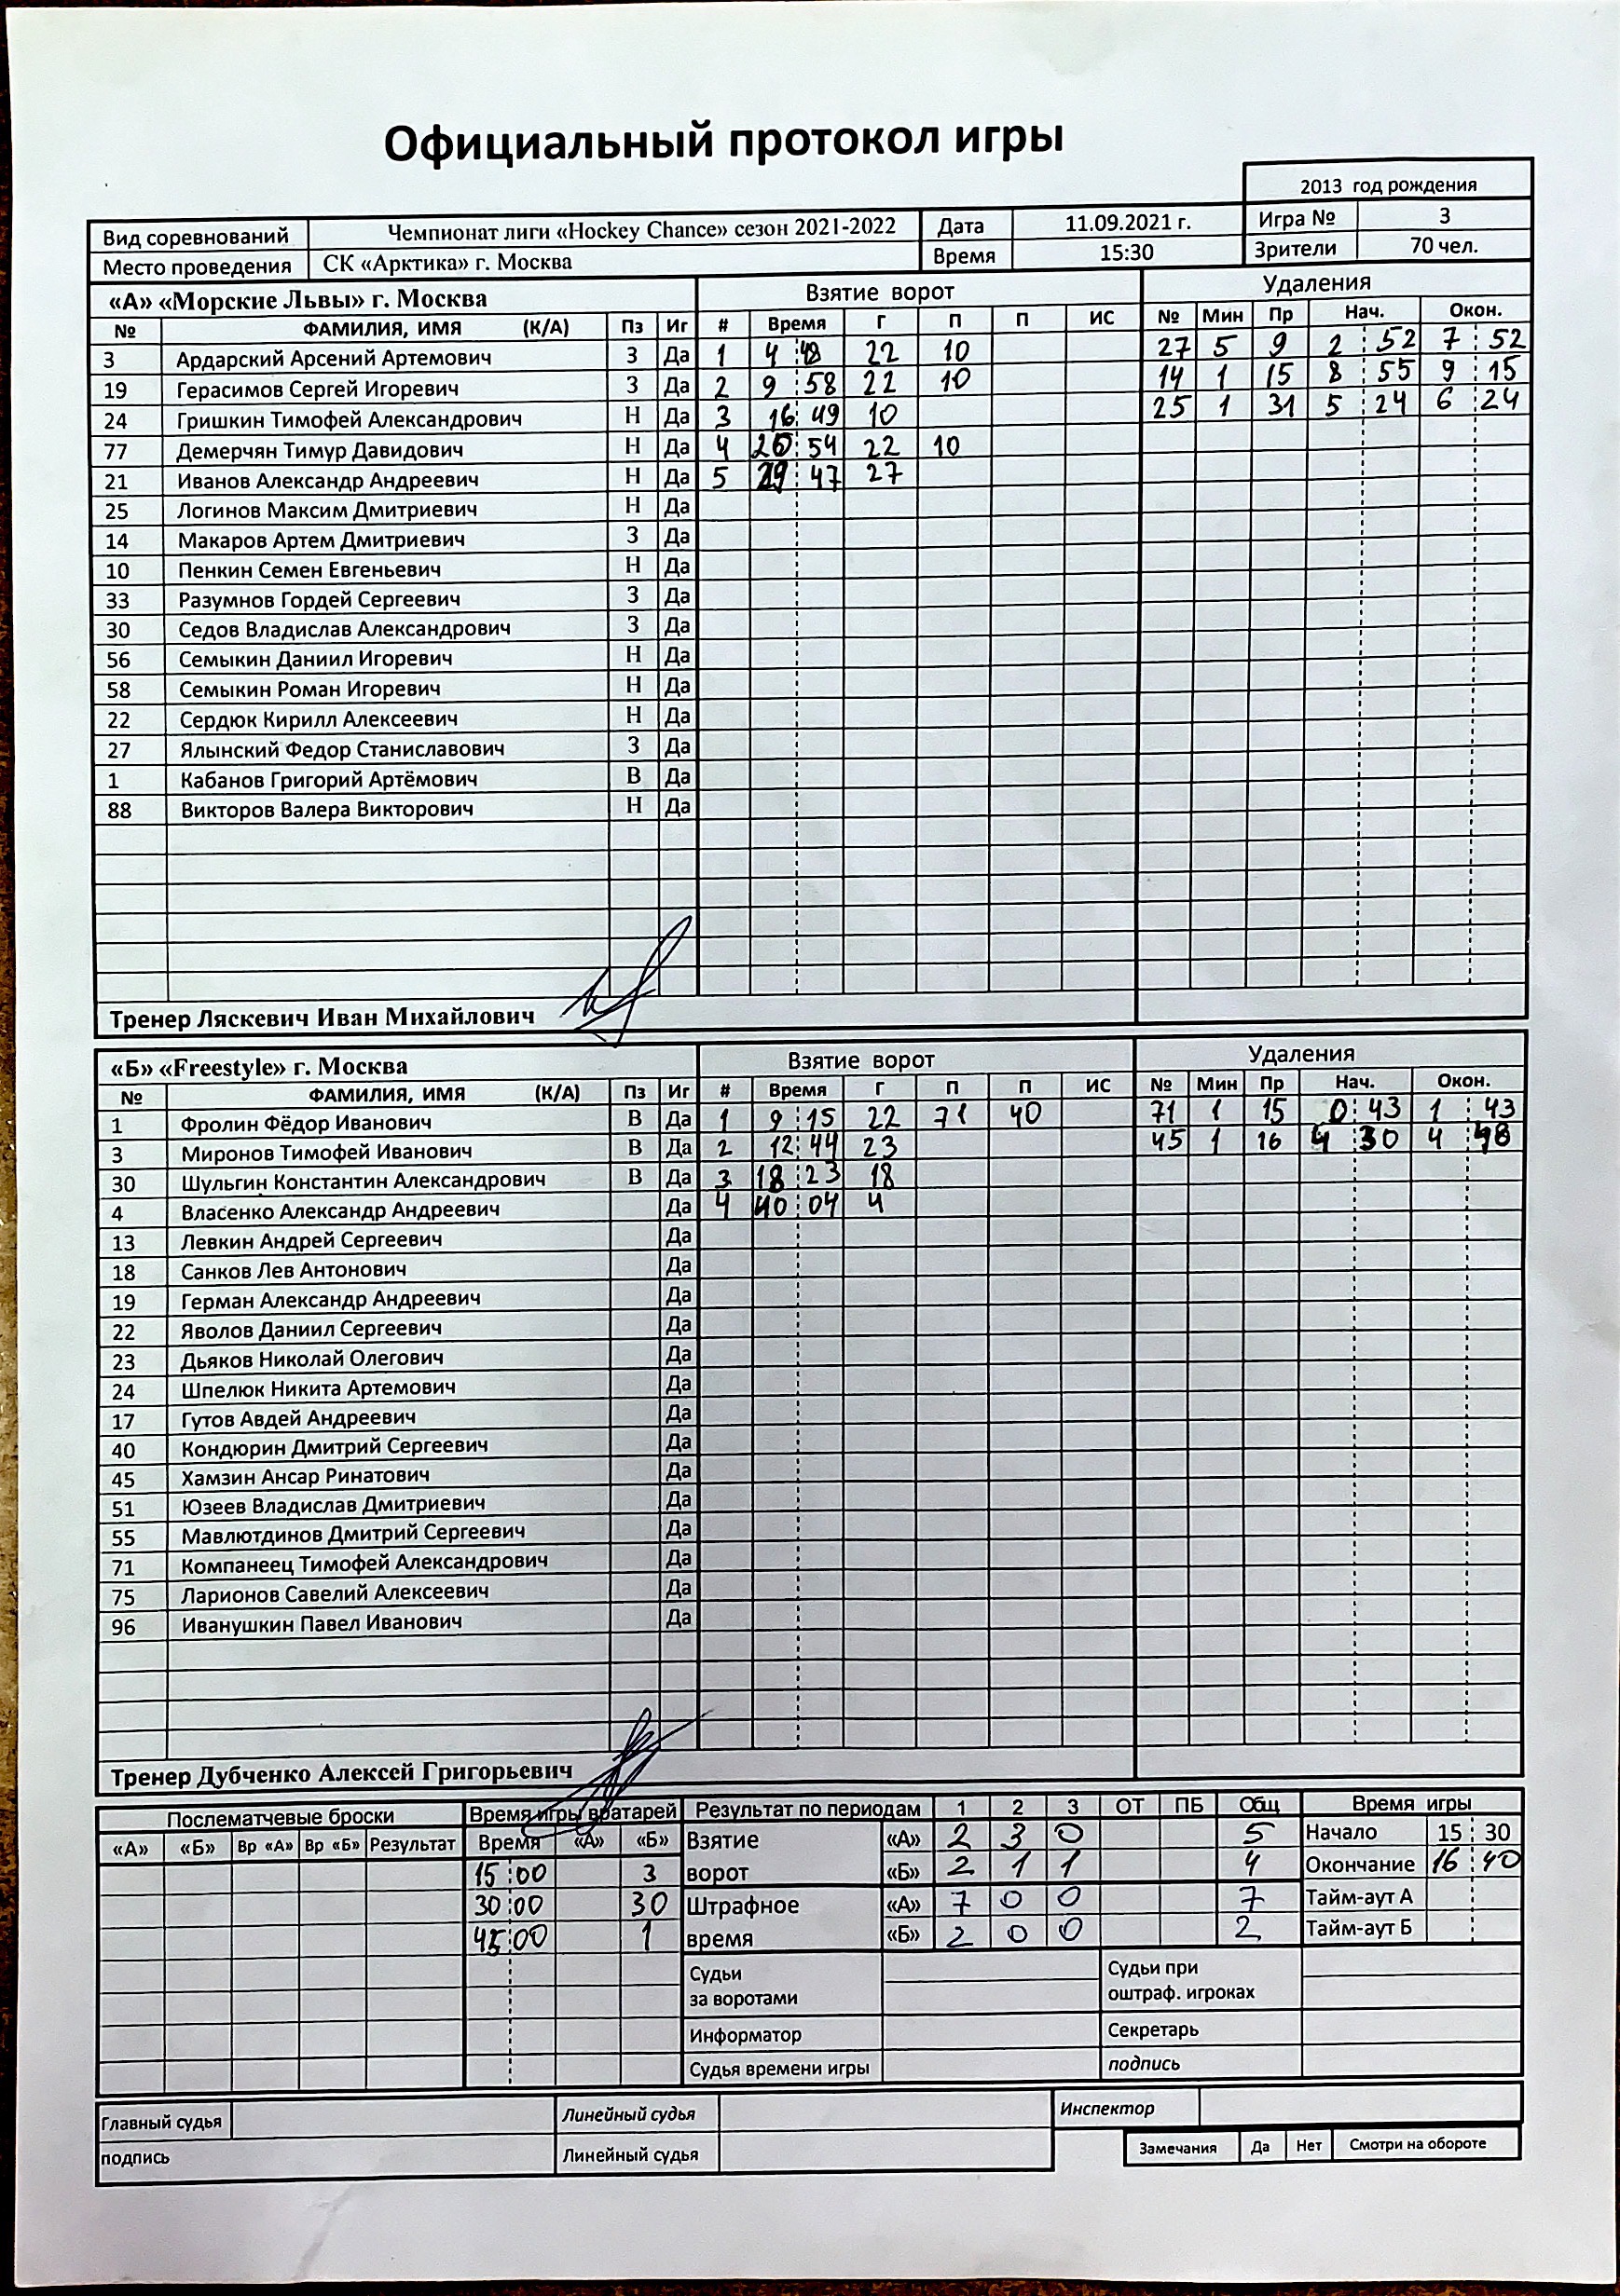 Официальный протокол игры
2013 год рождения
Вид соревнований Чемпионат лиги «Hockey Chance» сезон 2021-2022 Дата 11.09.2021 г. Игра № 3
Место проведения СК «Арктика» г. Москва Время 15:30 Зрители 70 чел.
«А» «Морские Львы» г. Москва Взятие ворот Удаления
№ ФАМИЛИЯ, ИМЯ (К/А) Пз Иг # Время Г П П ИС № Мин Пр Нач. Окон.
3 Ардарский Арсений Артемович З Да 1 4 : 48 22 10 27 5 9 2 : 52 7 : 52
19 Герасимов Сергей Игоревич З Да 2 9 : 58 22 10 14 1 15 8 : 55 9 : 15
24 Гришкин Тимофей Александрович Н Да 3 16 : 49 10 25 1 31 5 : 24 6 : 24
77 Демерчян Тимур Давидович Н Да 4 : 54 22 10
21 Иванов Александр Андреевич Н Да 5 29 : 47 27
25 Логинов Максим Дмитриевич Н Да
14 Макаров Артем Дмитриевич З Да
10 Пенкин Семен Евгеньевич Н Да
33 Разумнов Гордей Сергеевич З Да
30 Седов Владислав Александрович З Да
56 Семыкин Даниил Игоревич Н Да
58 Семыкин Роман Игоревич Н Да
22 Сердюк Кирилл Алексеевич Н Да
27 Ялынский Федор Станиславович З Да
1 Кабанов Григорий Артёмович В Да
88 Викторов Валера Викторович Н Да
Тренер Ляскевич Иван Михайлович
«Б» «Freestyle» г. Москва Взятие ворот Удаления
№ ФАМИЛИЯ, ИМЯ (К/А) Пз Иг # Время Г П П ИС № Мин Пр Нач. Окон.
1 Фролин Фёдор Иванович В Да 1 9 : 15 22 71 40 71 1 15 0 : 43 1 : 43
3 Миронов Тимофей Иванович В Да 2 12 : 44 23 45 1 16 4 : 30 4 : 48
30 Шульгин Константин Александрович В Да 3 18 : 23 18
4 Власенко Александр Андреевич Да 4 40 : 04 4
13 Левкин Андрей Сергеевич Да
18 Санков Лев Антонович Да
19 Герман Александр Андреевич Да
22 Яволов Даниил Сергеевич Да
23 Дьяков Николай Олегович Да
24 Шпелюк Никита Артемович Да
17 Гутов Авдей Андреевич Да
40 Кондюрин Дмитрий Сергеевич Да
45 Хамзин Ансар Ринатович Да
51 Юзеев Владислав Дмитриевич Да
55 Мавлютдинов Дмитрий Сергеевич Да
71 Компанеец Тимофей Александрович Да
75 Ларионов Савелий Алексеевич Да
96 Иванушкин Павел Иванович Да
Тренер Дубченко Алексей Григорьевич
Послематчевые броски Время игры вратарей Результат по периодам 1 2 3 ОТ ПБ Общ Время игры
«А» «Б» Вр «А» Вр «Б» Результат Время «А» «Б» Взятие «А» 2 3 0 5 Начало 15 : 30
15 : 00 3 ворот «Б» 2 1 1 4 Окончание 16 : 40
30 : 00 30 Штрафное «А» 7 0 0 7 Тайм-аут А
45 : 00 1 время «Б» 2 0 0 2 Тайм-аут Б
Судьи за воротами Судьи при оштраф. игроках
Информатор Секретарь
Судья времени игры подпись
Главный судья Линейный судья Инспектор
подпись Линейный судья Замечания Да Нет Смотри на обороте